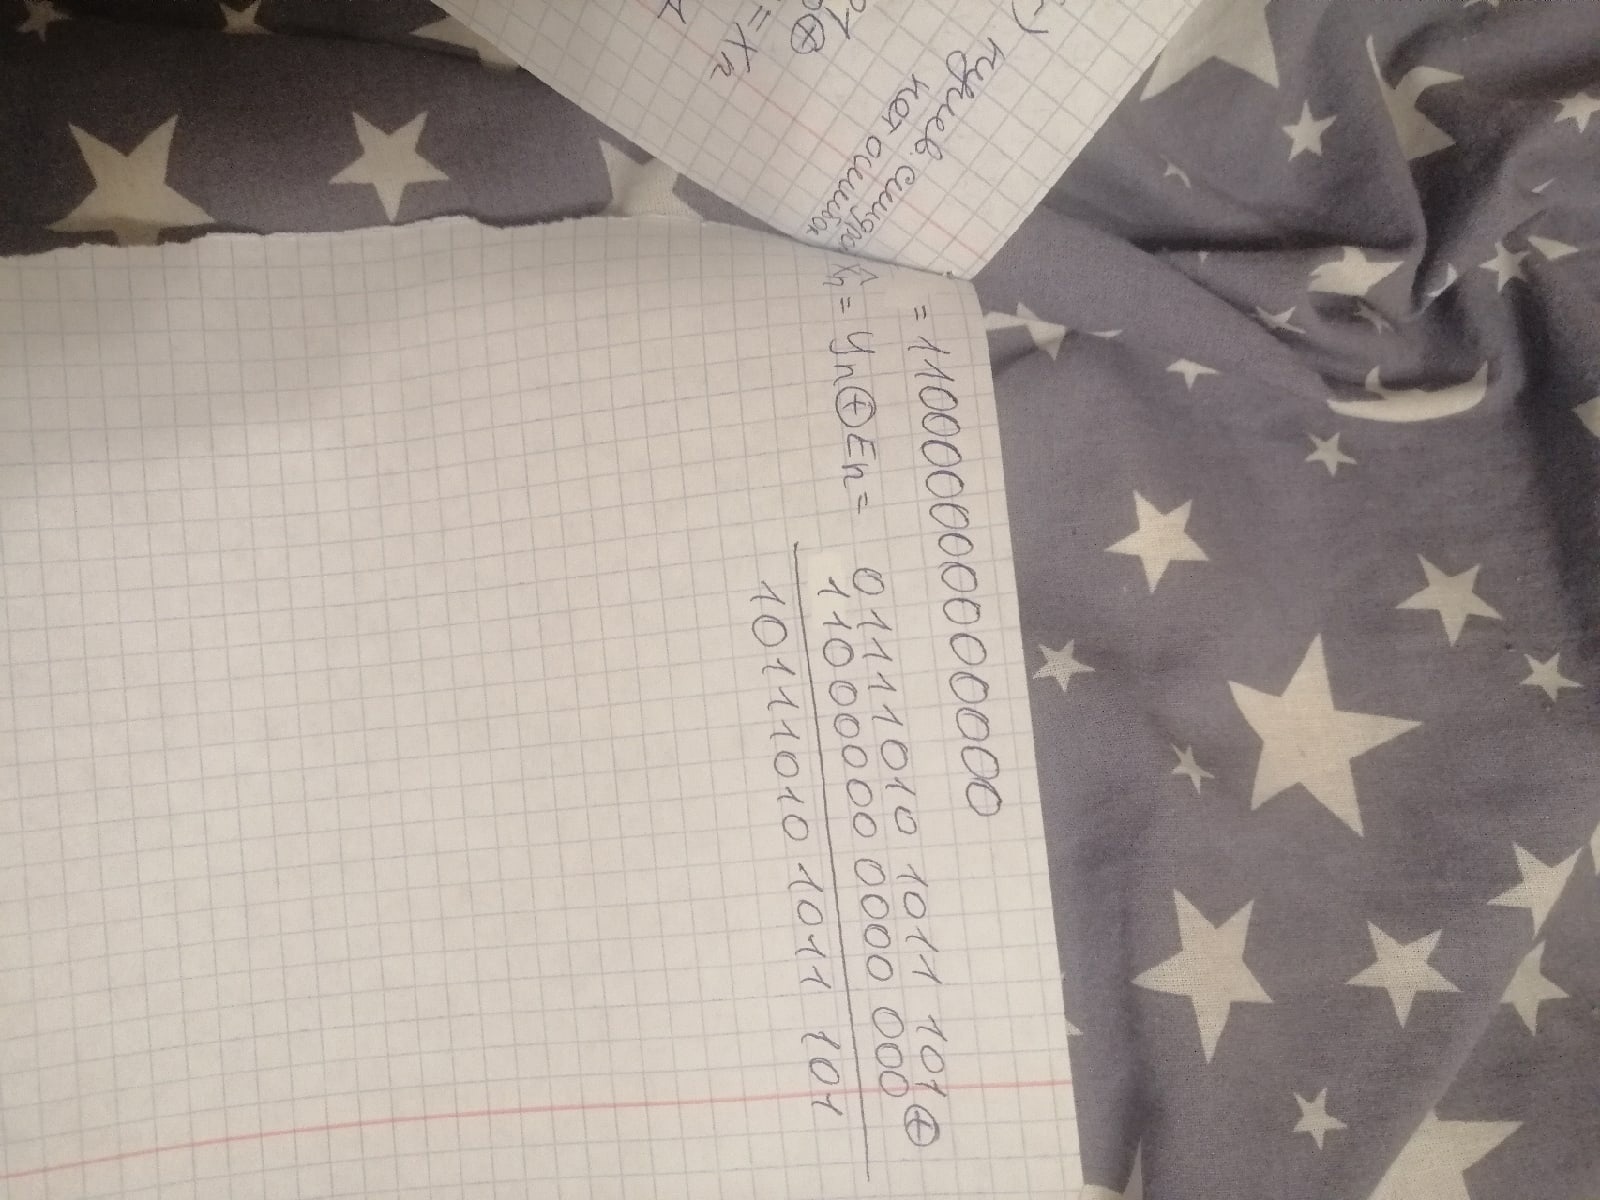 ) нулев. синдр
нет ошибка
= Xn
= 110000000000000
X̂n = Yn ⊕ En = 01111010 1011 101 ⊕
11000000 0000 000
10111010 1011 101